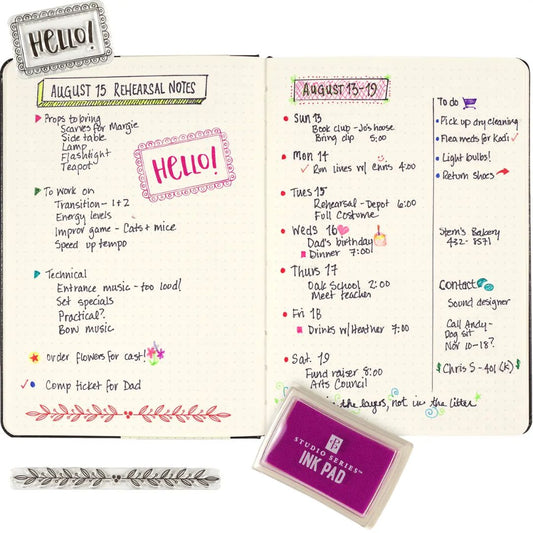 HELLO!
AUGUST 15 REHEARSAL NOTES
Props to bring
Scarves for Margie
Side table
Lamp
Flashlight
Teapot
HELLO!
To work on
Transition - 1+2
Energy levels
Improv game - Cats + mice
Speed up tempo
Technical
Entrance music - too loud!
Set specials
Practical?
Bow music
order flowers for cast!
Comp ticket for Dad
AUGUST 13-19
Sun 13
Book club - Jo's house
Bring dip 5:00
Mon 14
Run lines w/ Chris 4:00
Tues 15
Rehearsal - Depot 6:00
Full Costume
Weds 16
Dad's birthday
Dinner 7:00!
Thurs 17
Oak School 2:00
Meet teacher
Fri 18
Drinks w/Heather 7:00
Sat. 19
Fund raiser 8:00
Arts Council
in the layers, not in the litter
To do
Pick up dry cleaning
Flea meds for Kodi
Light bulbs!
Return shoes
Stern's Bakery
432-8571
Contact
Sound designer
Call Andy-
Dog sit
Nov 10-18?
Chris S - 401 (k)
STUDIO SERIES™
INK PAD